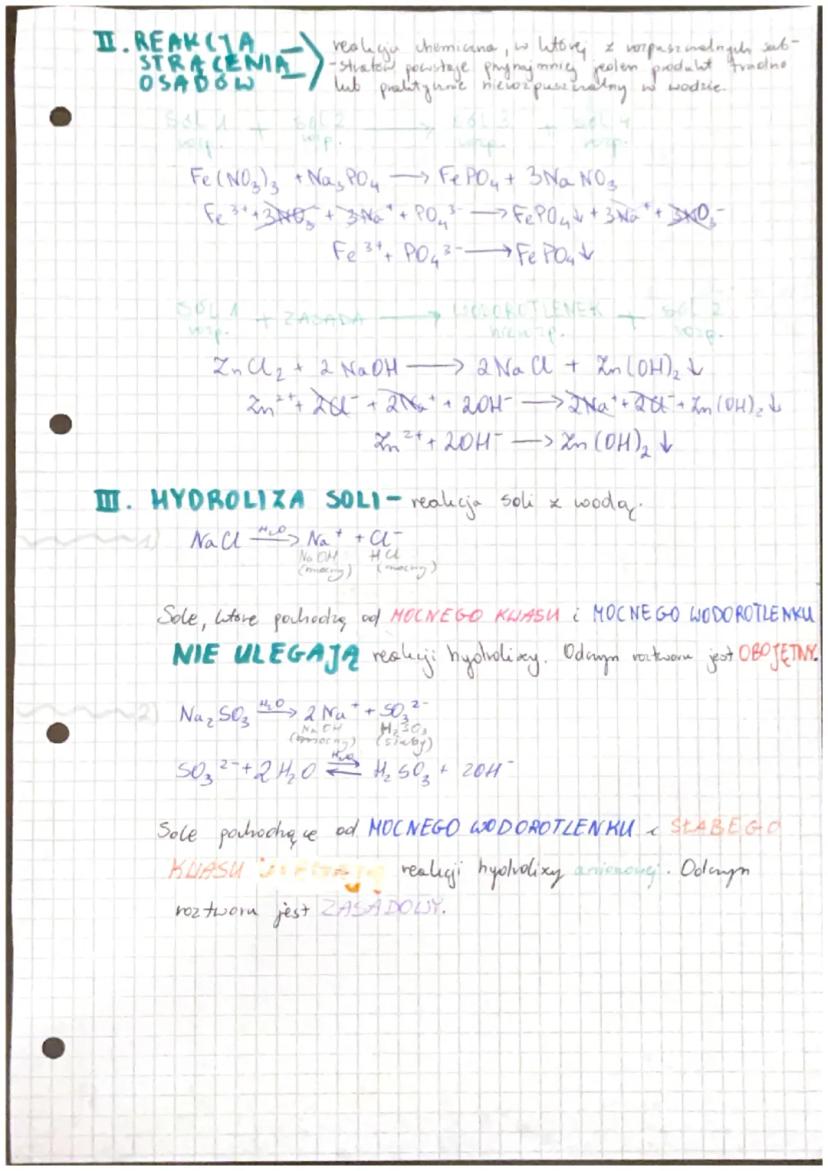 II. REAKCJA STRĄCENIA OSADÓW
reakcja chemiczna, w której z rozpuszczalnych sub-
-stratów powstaje przynajmniej jeden produkt trudno
lub praktycznie nierozpuszczalny w wodzie.
SÓL 1 + SÓL 2 → SÓL 3 + SÓL 4
rozp. rozp. rozp.
Fe(NO₃)₃ + Na₃PO₄ → FePO₄ + 3NaNO₃
Fe³⁺ + 3NO₃⁻ + 3Na⁺ + PO₄³⁻ → FePO₄↓ + 3Na⁺ + 3NO₃⁻
Fe³⁺ + PO₄³⁻ → FePO₄↓
SÓL 1 + ZASADA → WODOROTLENEK + SÓL 2
rozp. nierozp. rozp.
ZnCl₂ + 2NaOH → 2NaCl + Zn(OH)₂↓
Zn²⁺ + 2Cl⁻ + 2Na⁺ + 2OH⁻ → 2Na⁺ + 2Cl⁻ + Zn(OH)₂↓
Zn²⁺ + 2OH⁻ → Zn(OH)₂↓
III. HYDROLIZA SOLI - reakcja soli z wodą.
1) NaCl –H₂O→ Na⁺ + Cl⁻
NaOH HCl
(mocny) (mocny)
Sole, które pochodzą od MOCNEGO KWASU i MOCNEGO WODOROTLENKU
NIE ULEGAJĄ reakcji hydrolizy. Odczyn roztworu jest OBOJĘTNY.
2) Na₂SO₃ –H₂O→ 2Na⁺ + SO₃²⁻
NaOH H₂SO₃
(mocny) (słaby)
SO₃²⁻ + 2H₂O ⇌ H₂SO₃ + 2OH⁻
Sole pochodzące od MOCNEGO WODOROTLENKU i SŁABEGO
KWASU ULEGAJĄ reakcji hydrolizy anionowej. Odczyn
roztworu jest ZASADOWY.